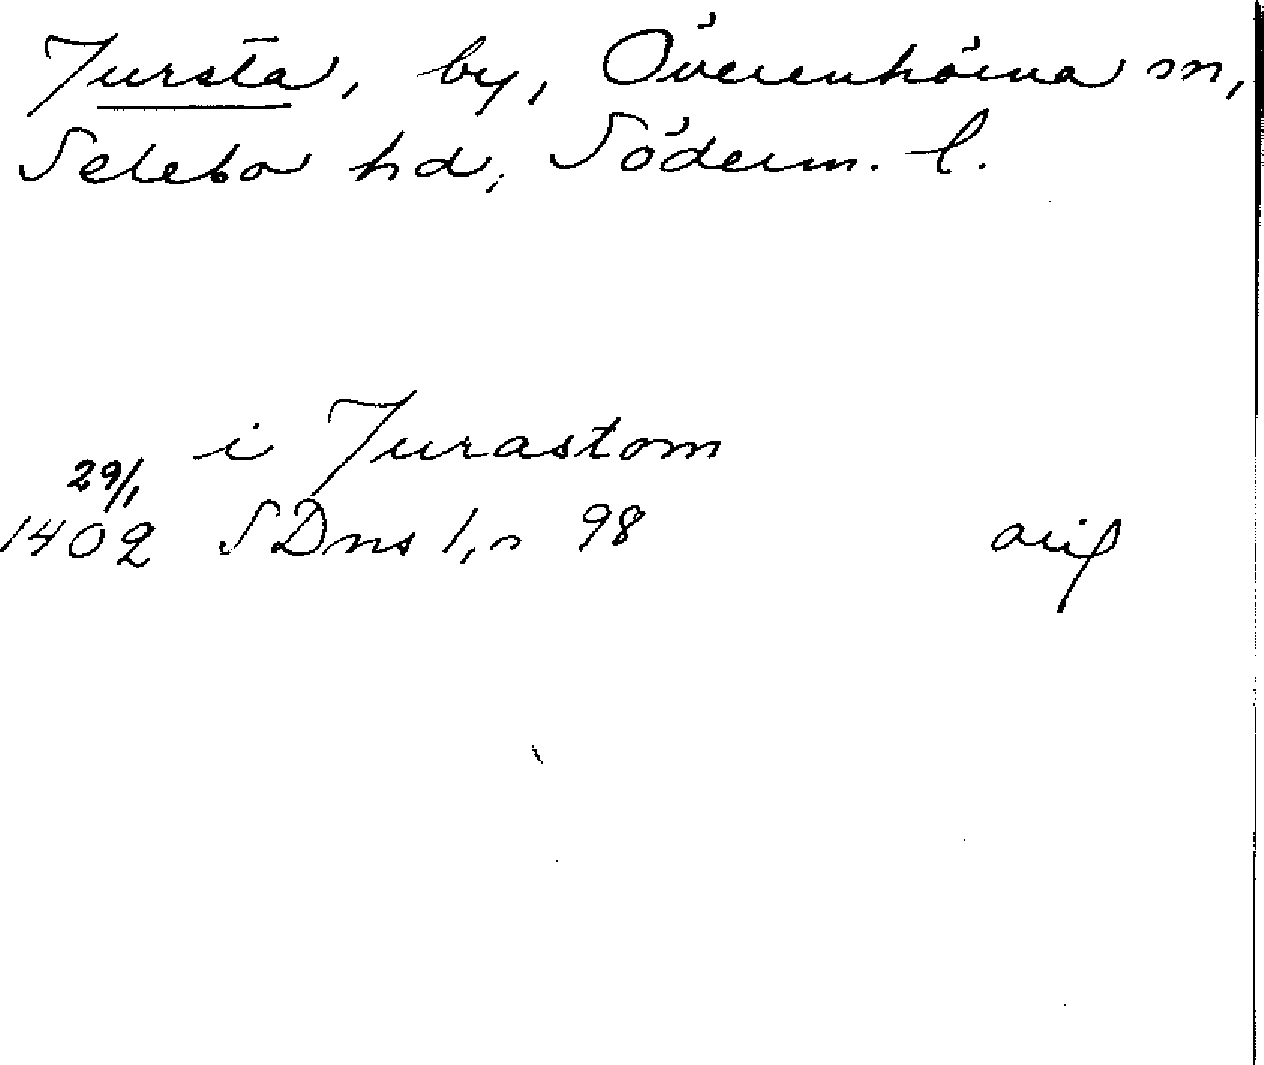 Jursta, by, Överenhörna sn,
Selebo hd, Söderm. l.
i Jurastom
29/1
1402 SDns 1, s 98 orig